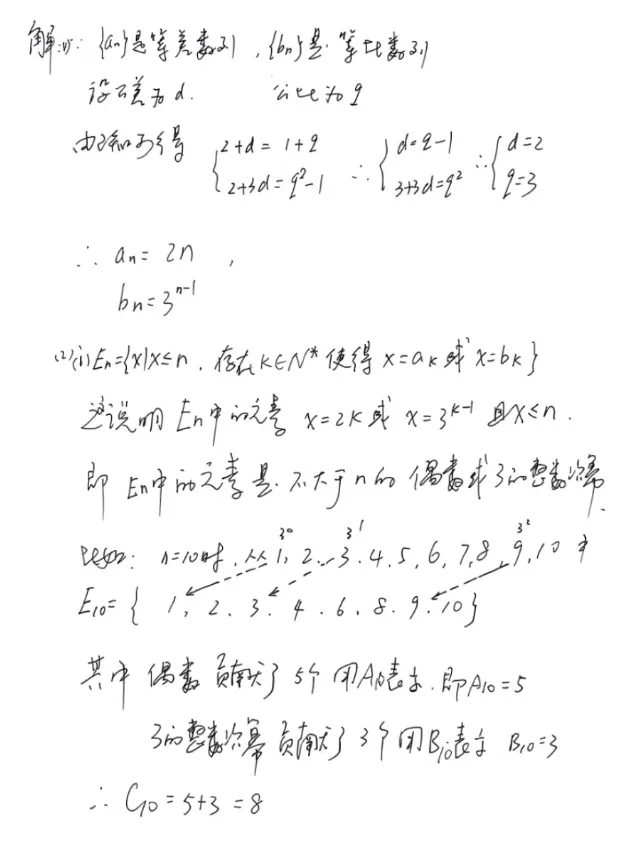 解(1): {an}是等差数列, {bn}是等比数列
设公差为d. 公比为q
由已知可得 {2+d=1+q 2+3d=q²-1 ∴ {d=q-1 3+3d=q² ∴ {d=2 q=3
∴ an=2n,
bn=3^{n-1}
(2)(i) En={x|x≤n, 存在k∈N* 使得 x=ak 或 x=bk}
这说明 En中的元素 x=2k 或 x=3^{k-1} 且x≤n.
即 En中的元素是不大于n的偶数或3的整数次幂.
3⁰ 3¹ 3²
比如: n=10时, 从 1, 2, 3, 4, 5, 6, 7, 8, 9, 10 中
E10={ 1, 2, 3, 4, 6, 8, 9, 10}
其中 偶数贡献了5个 用A10表示. 即A10=5
3的整数次幂贡献了3个 用B10表示 B10=3
∴ C10=5+3=8